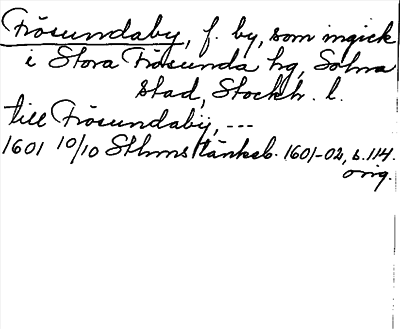 Frösundaby, f. by, som ingick
i Stora Frösunda hg, Solna
stad, Stockh. l.
till Frösundabÿ, ---
1601 10/10 Sthms tänkeb. 1601-02, s. 114.
orig.